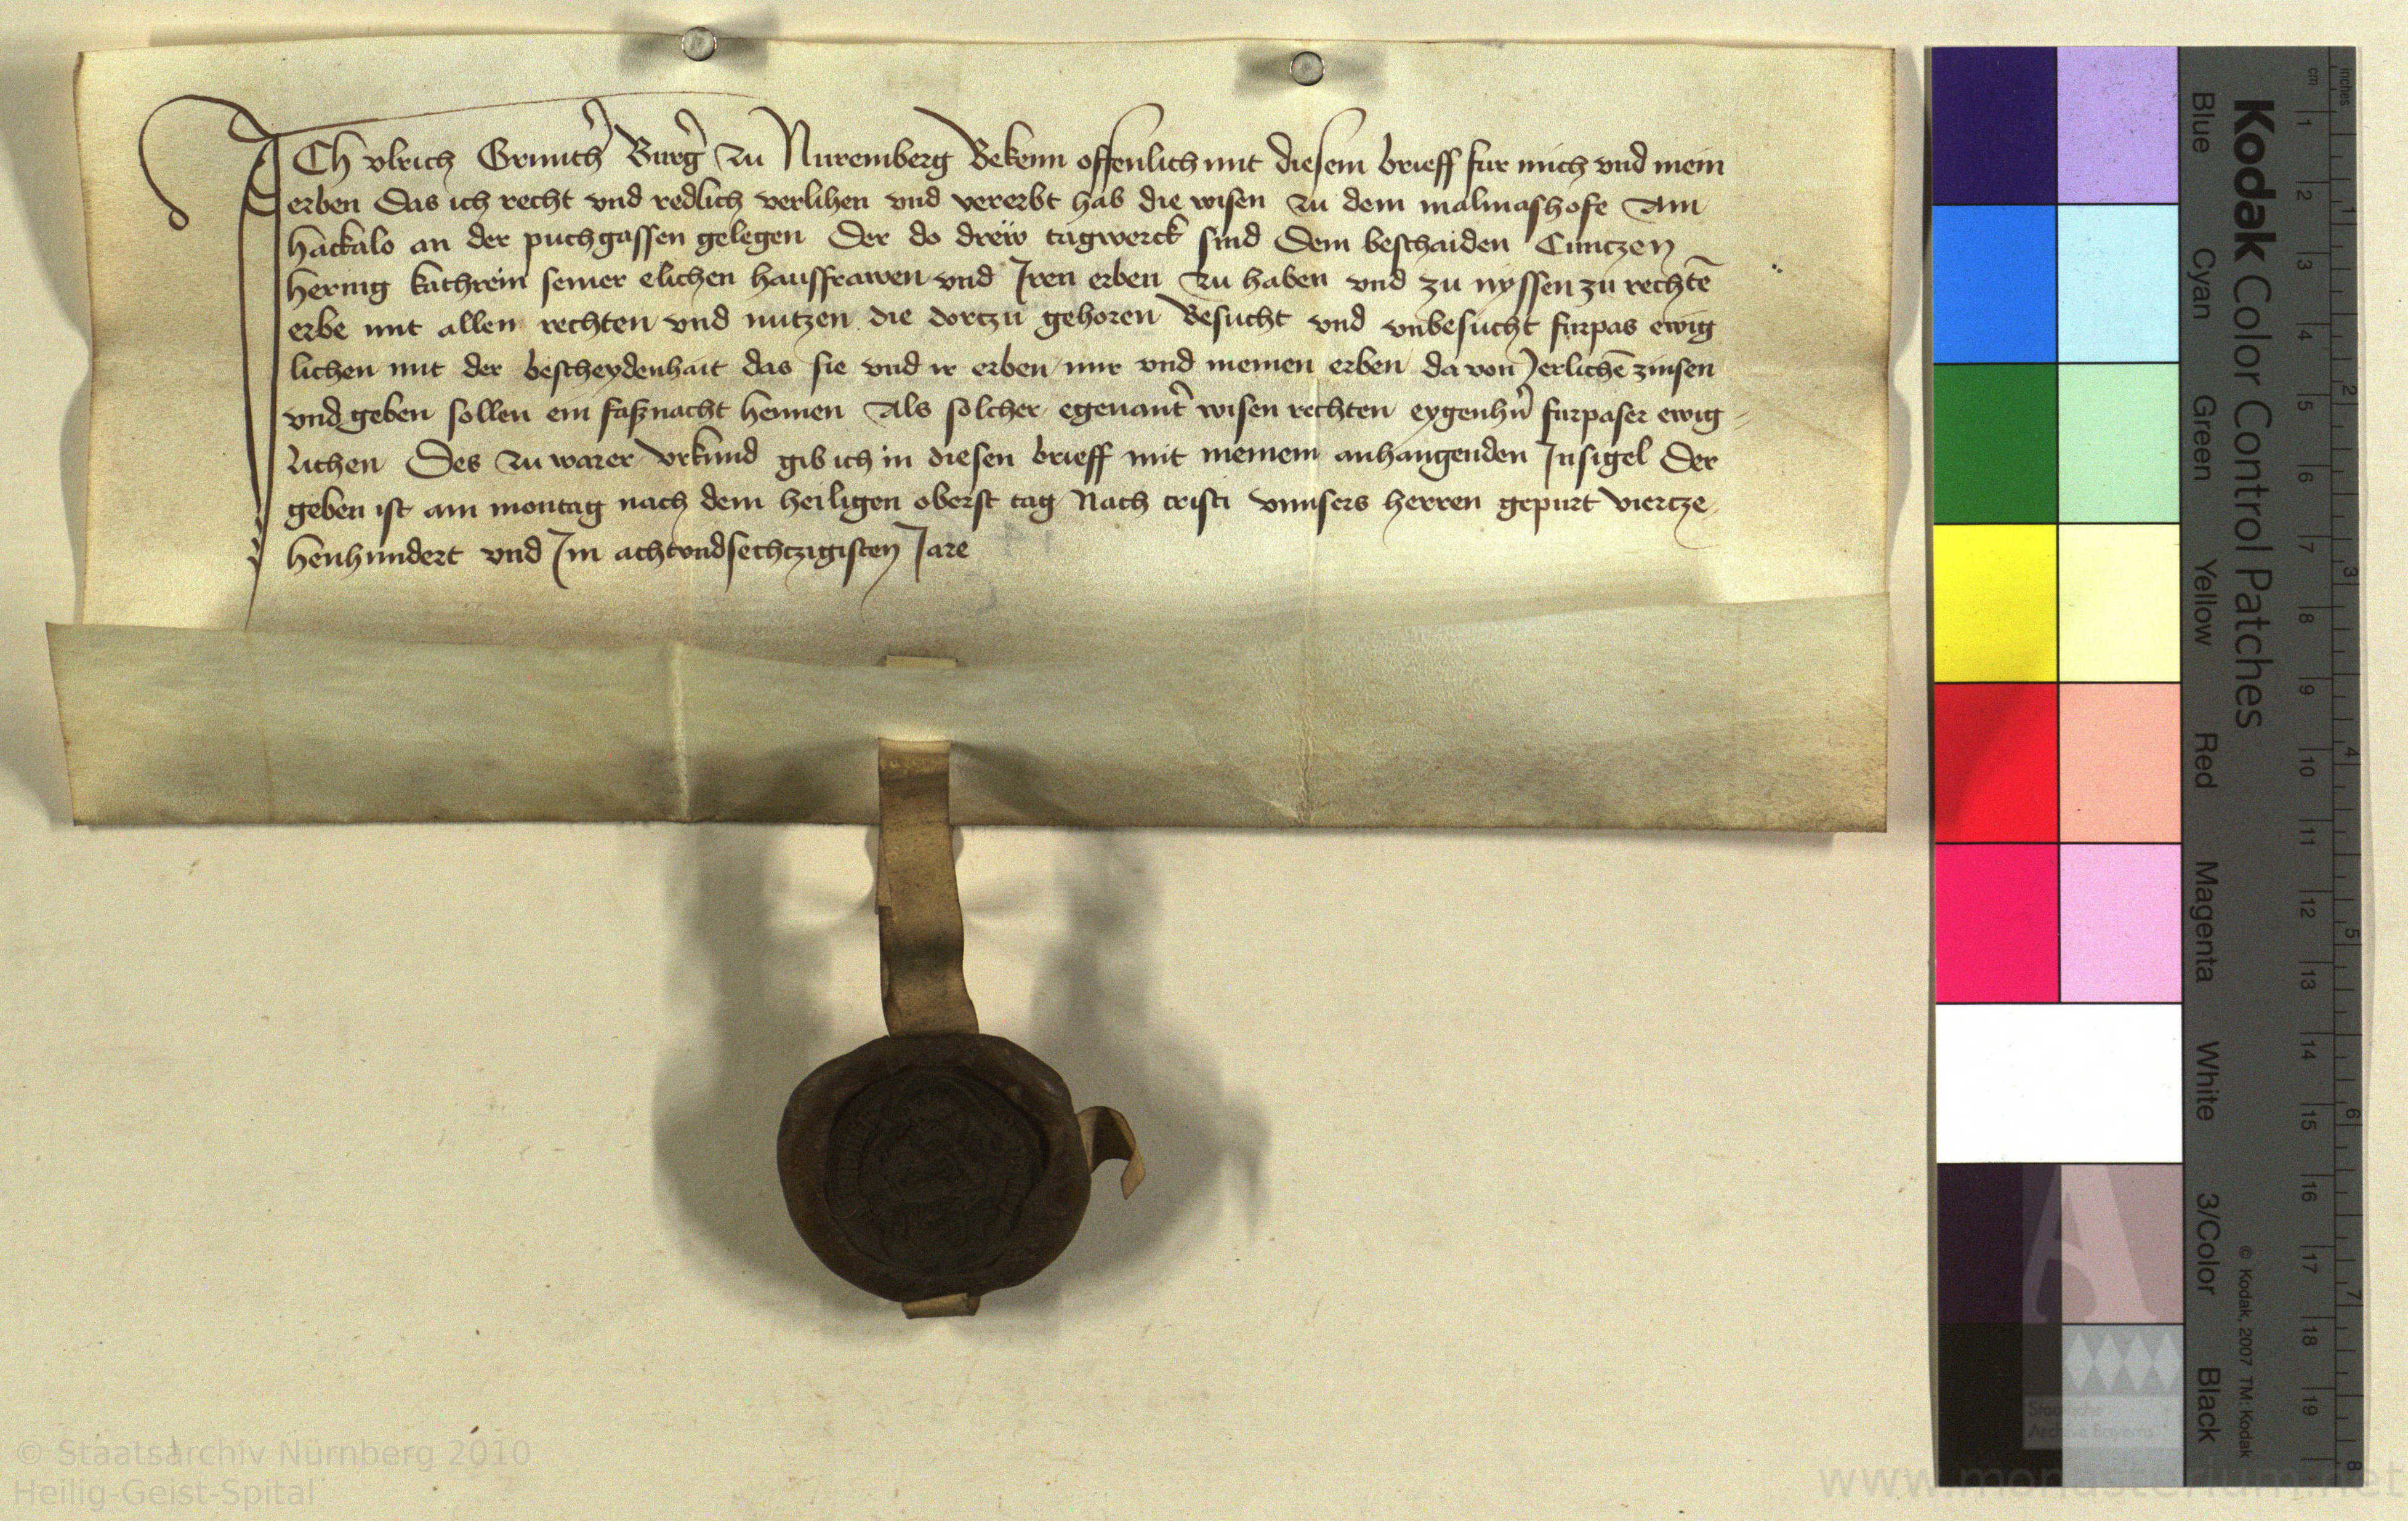 ICh vlrich Grunth̕ Burg̕ zu Nuremberg Bekenn offenlich mit diesem brieff fur mich vnd mein
erben Das ich recht vnd redlich verlihen vnd vererbt hab die wisen zu dem malmashofe Am
hackalo an der puchgassen gelegen Der do dreÿ tagwerck sind Dem beschaiden Cuntzen
hering kathrein seiner elichen hausfrawen vnd Jren erben zu haben vnd zu nyssen zu rechtē
erbe mit allen rechten vnd nutzen die dortzu gehoren Besucht vnd vnbesucht furpas ewig
lichen mit der bescheydenhait das sie vnd ir erben mir vnd meinen erben da von Jerlichē zinsen
vnd geben sollen ein faßnacht hennen Als solcher egenant̕ wisen rechten eygenhn̕ furpaser ewig-
lichen Des zu warer vrkund gib ich in diesen brieff mit meinem anhangenden Jnsigel Der
geben ist am montag nach dem heiligen oberst tag Nach cristi vnnsers herren gepurt viertze
henhundert vnd Jm achtvndsechtzigisten Jare
Kodak Color Control Patches
Blue Cyan Green Yellow Red Magenta White 3/Color Black
© Kodak, 2007 TM: Kodak
cm 1 2 3 4 5 6 7 8 9 10 11 12 13 14 15 16 17 18 19
inches 1 2 3 4 5 6 7 8
Staatliche
Archive Bayerns
© Staatsarchiv Nürnberg 2010
Heilig-Geist-Spital
www.monasterium.net